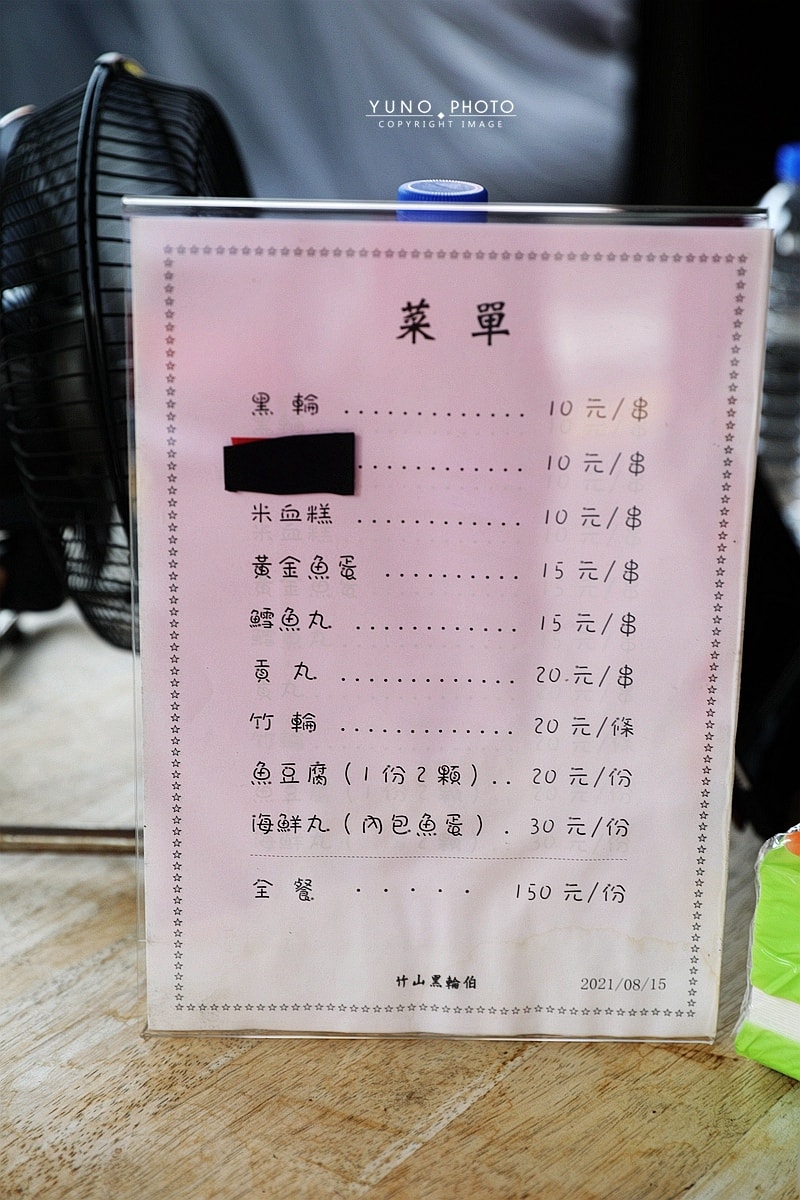 YUNO PHOTO
COPYRIGHT IMAGE
菜 單
黑 輪 ............. 10 元/串
............ 10 元/串
米血糕 ............ 10 元/串
黃金魚蛋 .......... 15 元/串
鱈魚丸 ............ 15 元/串
貢 丸 ............. 20 元/串
竹 輪 ............. 20 元/條
魚豆腐(1份2顆).. 20 元/份
海鮮丸(內包魚蛋). 30 元/份
全 餐 ..... 150 元/份
竹山黑輪伯 2021/08/15